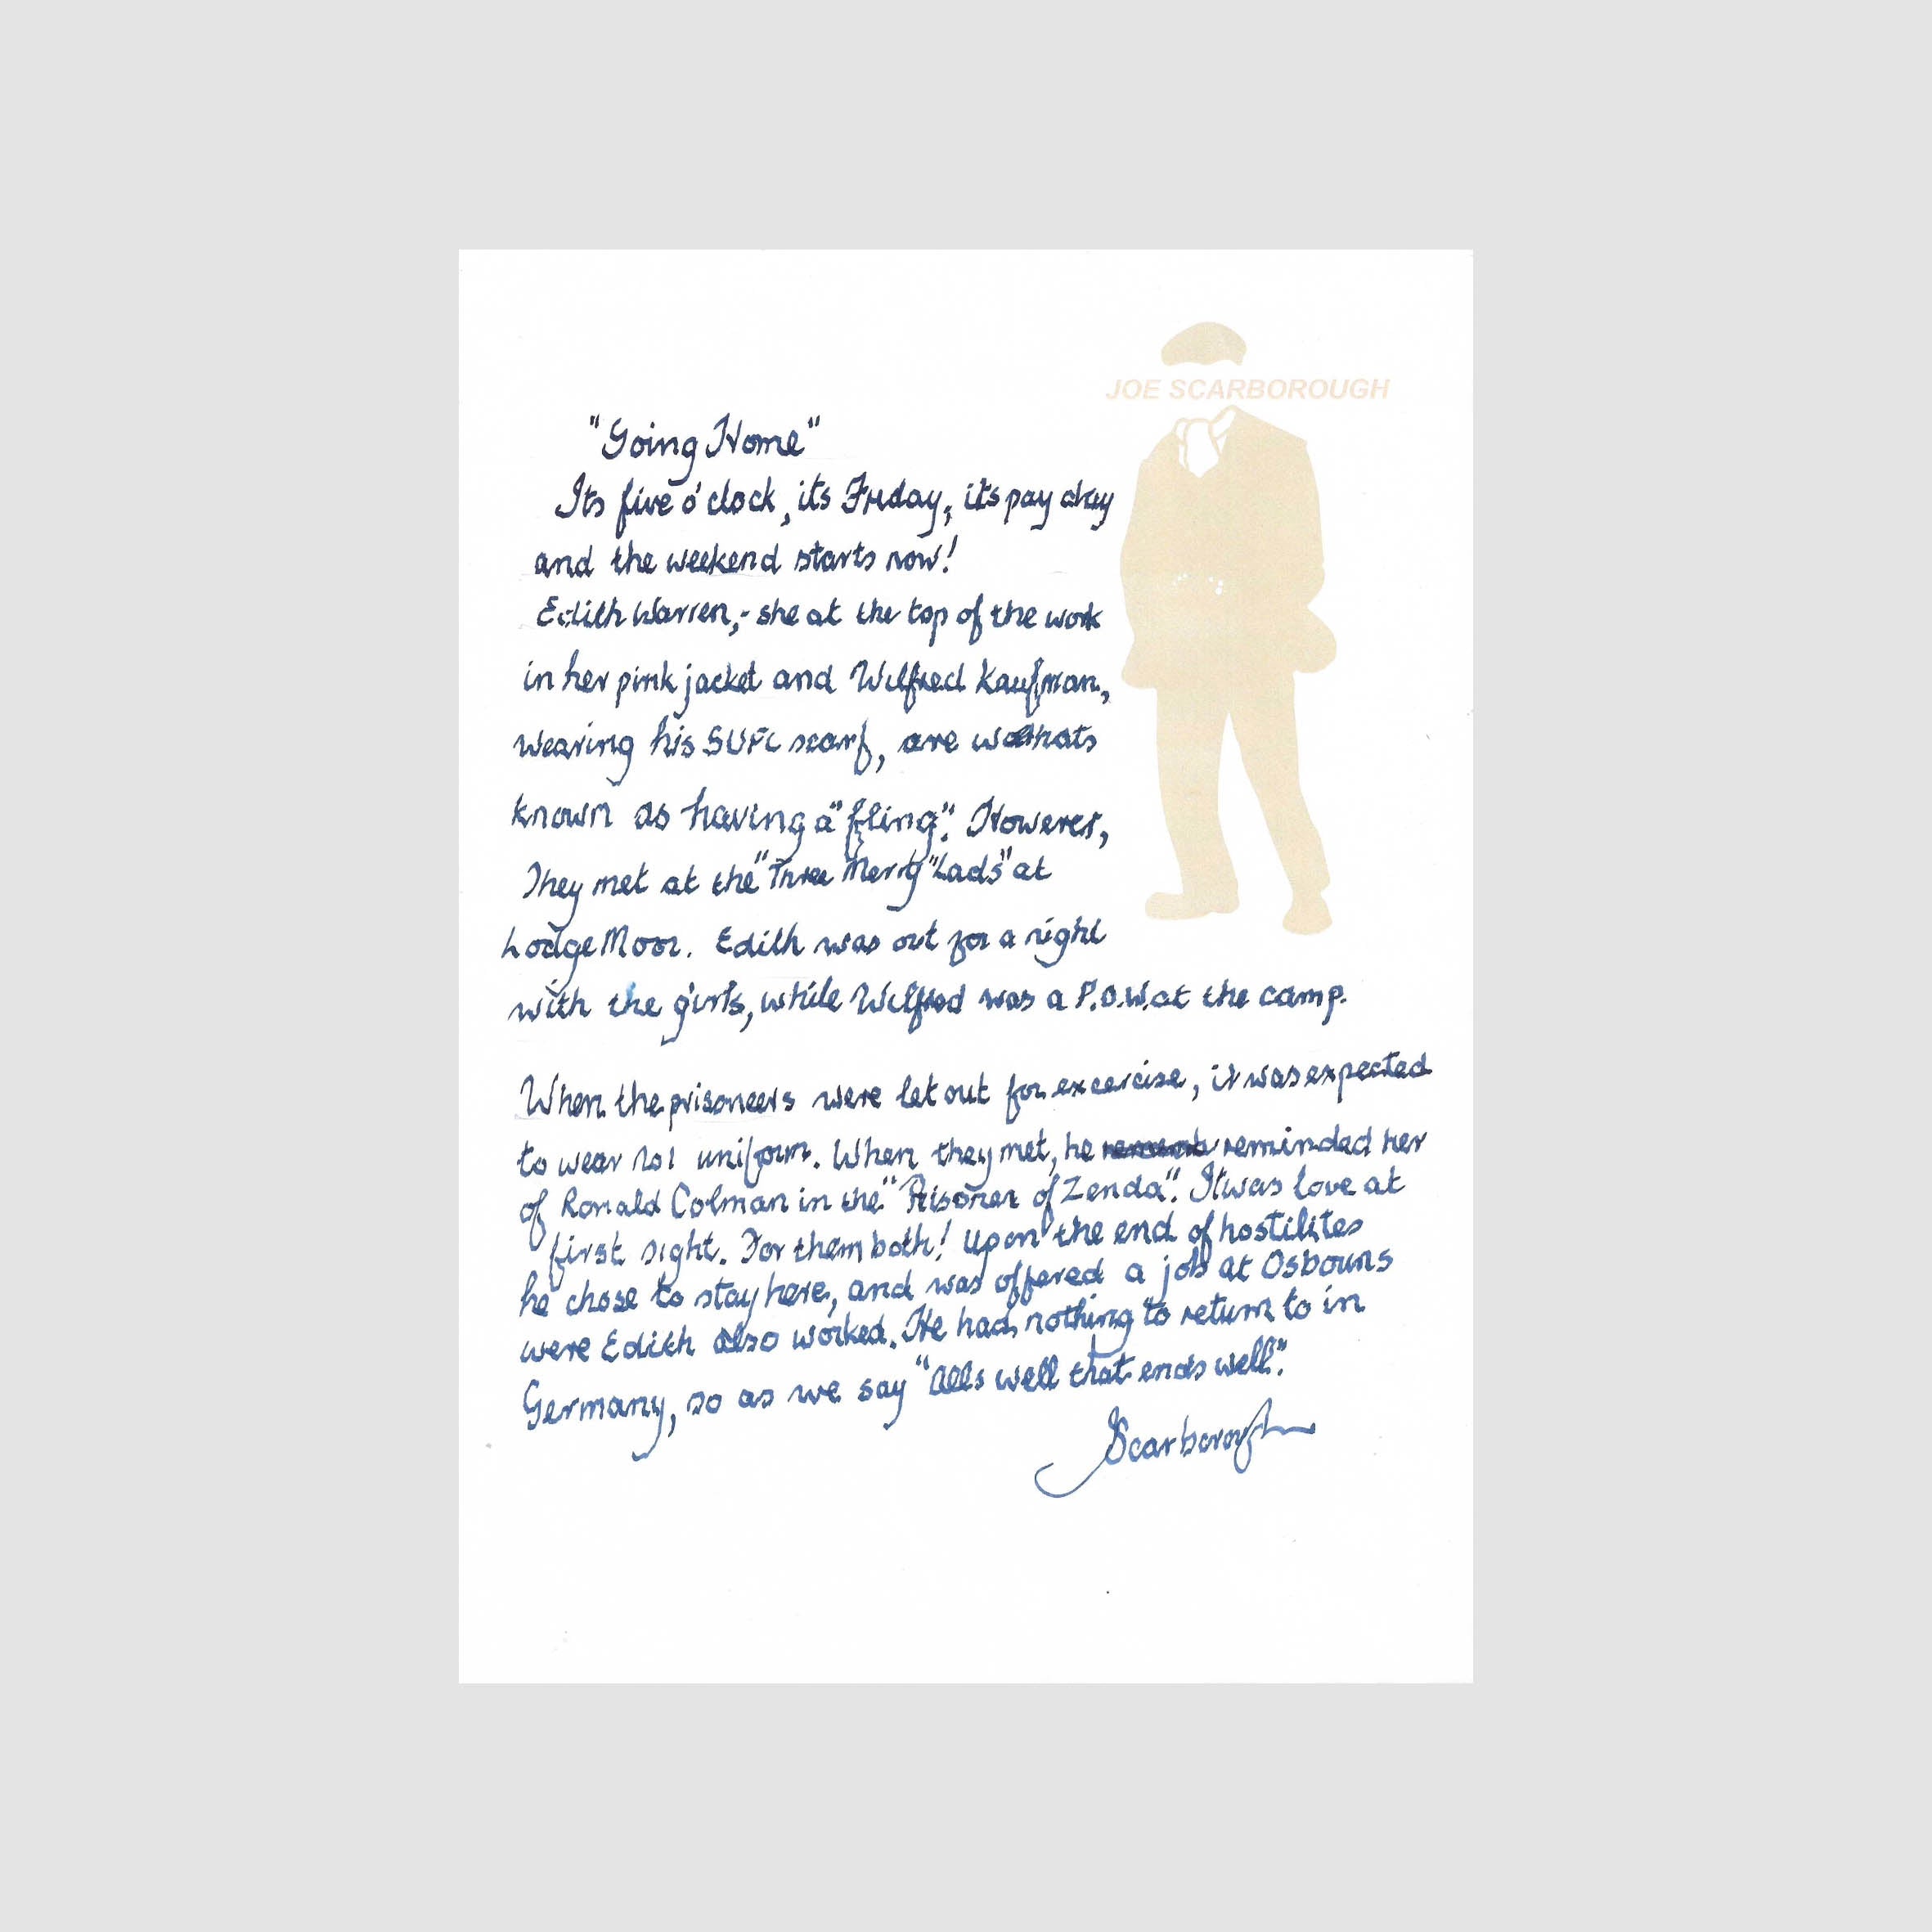 JOE SCARBOROUGH
"Going Home"
Its five o'clock, its Friday, its pay day
and the weekend starts now!
Edith Warren,- she at the top of the work
in her pink jacket and Wilfred Kaufman,
wearing his SUFC scarf, are whats
known as having a "fling". However,
They met at the "Three Merry "Lads" at
Lodge Moor. Edith was out for a night
with the girls, while Wilfred was a P.O.W. at the camp.
When the prisoneers were let out for excercise, it was expected
to wear uniform. When they met, he reminded her
of Ronald Colman in the "Prisoner of Zenda". It was love at
first sight. For them both! Upon the end of hostilites
he chose to stay here, and was offered a job at Osbouns
were Edith also worked. He had nothing to return to in
Germany, so as we say "Alls well that ends well".
JScarborough